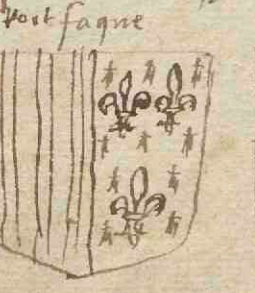 port faque